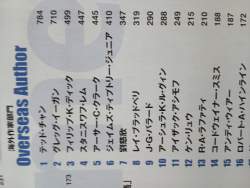 海外作家部門
Overseas Author
1 テッド・チャン 784
2 グレッグ・イーガン 710
3 フィリップ・K・ディック 499
4 スタニスワフ・レム 447
5 アーサー・C・クラーク 445
6 ジェイムズ・ティプトリー・ジュニア 410
7 劉慈欣 347
8 レイ・ブラッドベリ 319
9 J・G・バラード 290
10 アーシュラ・K・ル・グィン 288
11 アイザック・アシモフ 249
12 ケン・リュウ 215
13 R・A・ラファティ 210
14 コードウェイナー・スミス 188
15 アンディ・ウィアー 187
16 ロバート・A・ハインライン 172
173